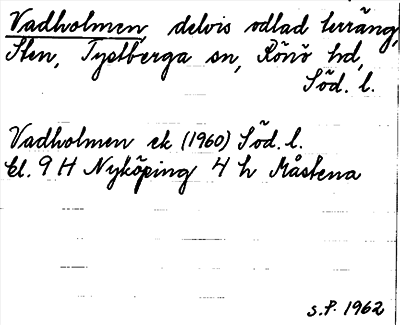 Vadholmen, delvis odlad terräng,
Sten, Tystberga sn, Rönö hd,
Söd. l.
Vadholmen ek (1960) Söd. l.
bl. 9 H Nyköping 4 h Måstena
S.P. 1962